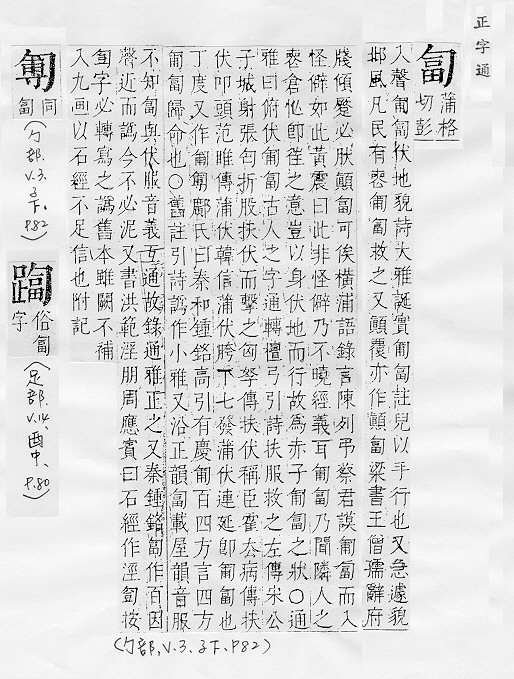 正字通
匐 蒲格切彭
入聲匍匐伏地貌詩大雅誕實匍匐註兒以手行也又急遽貌
邶風凡民有喪匍匐救之又顛覆亦作顛匐梁書王僧孺辭府
牋傾蹙必朕顛匐可俟橫蒲語錄言陳列弔蔡君謨匍匐而入
怪僻如此黃震曰此非怪僻乃不曉經義耳匍匐乃聞隣人之
喪倉忙卽徃之意豈以身伏地而行故爲赤子匍匐之狀○通
雅曰俯伏匍匐古人之字通轉檀弓引詩扶服救之左傳宋公
子城射張匄折股扶伏而擊之匈孥傳扶伏稱臣霍去病傳扶
伏叩頭范睢傳蒲伏韓信蒲伏胯下七發蒲伏連延卽匍匐也
丁度又作匍氏曰秦和鍾銘高引有慶匍百四方言四方
匍匐歸命也○舊註引詩譌作小雅又沿正韻匐載屋韻音服
不知匐與伏服音義互通故錄通雅正之又秦鍾銘匐作百因
聲近而譌今不必泥又書洪範淫朋周應賓曰石經作涇按
字必轉寫之譌舊本雖闕不補
入九画以石經不足信也附記
(勹部,V.3.子下.P82)
同匐
(勹部.V.3.子下.P82)
踾 俗匐字
(足部.V.14.酉中.P.80)